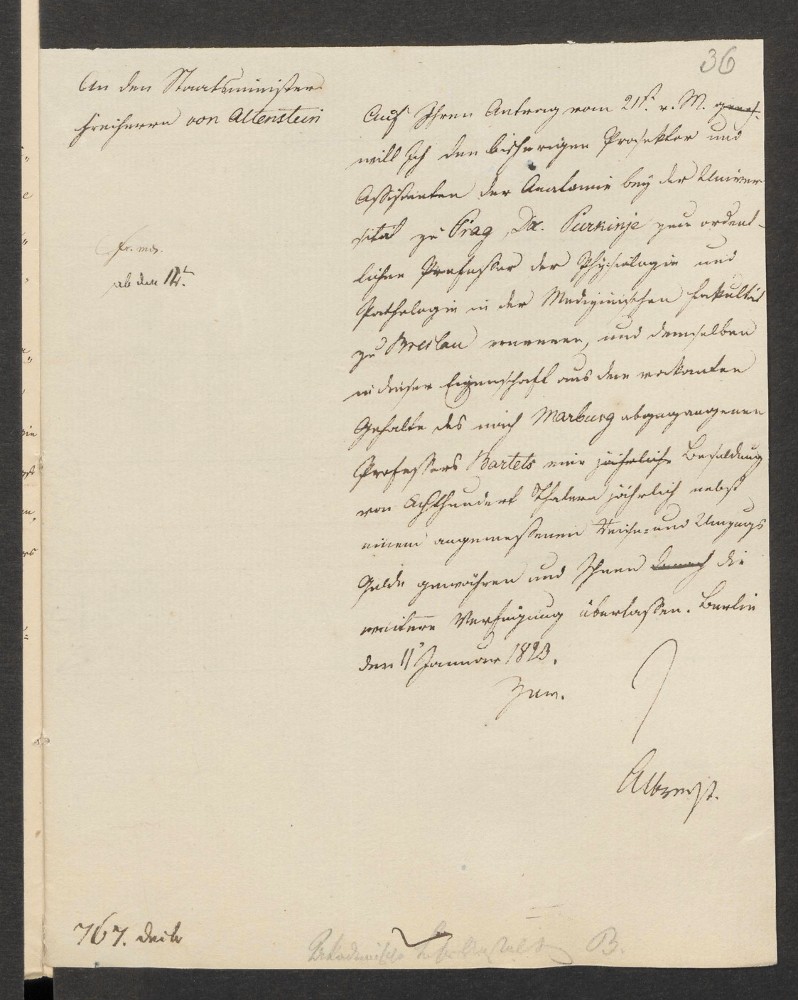 36
An den Staatsminister
Freiherrn von Altenstein
Auf Ihren Antrag vom 21t. v. M.
will Ich den bisherigen Prosektor und
Assistenten der Anatomie bey der Univer
sität zu Prag, Dr. Purkinje zum ordent-
lichen Professor der Physiologie und
Pathologie in der Medizinischen Fakultät
zu Breslau ernennen, und demselben
in dieser Eigenschaft aus dem vakanten
Gehalte des nach Marburg abgegangenen
Professors Bartels eine jährliche Besoldung
von Achthundert Thalern jährlich nebst
einem angemessenen Reise- und Umzugs
Gelde gewähren und Ihnen danach die
weitere Verfügung überlassen. Berlin
den 11 Januar 1823.
Albrecht.
ab den 14t.
767.
B.